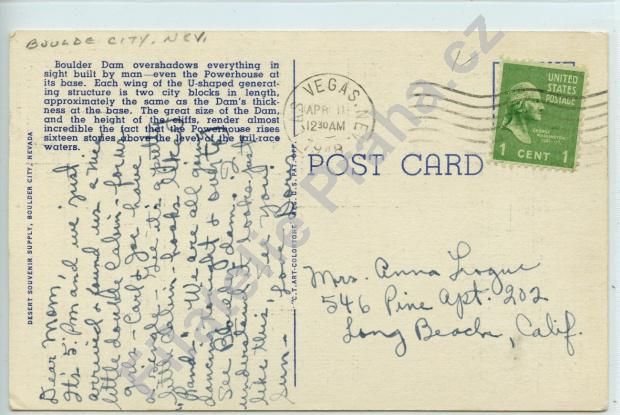 BOULDE CITY, NEV.
Boulder Dam overshadows everything in
sight built by man—even the Powerhouse at
its base. Each wing of the U-shaped generat-
ing structure is two city blocks in length,
approximately the same as the Dam's thick-
ness at the base. The great size of the Dam,
and the height of the cliffs, render almost
incredible the fact that the Powerhouse rises
sixteen stories above the level of the tail-race
waters.
DESERT SOUVENIR SUPPLY, BOULDER CITY, NEVADA
Dear Mom,
It's 5: P.m and we just
arrived & found us a nice
little double Cabin - for us
gals - Carl & Joe have
little Cabin - looks like
"Pands". We are all going
dancing tonight & out to
See Boulder dam.
understand it looks just
like this. See you
Sun - Love
"C.T. ART-COLORTONE" REG. U.S. PAT. OFF.
LAS VEGAS, NEV.
APR 11
12 30 AM
POST CARD
UNITED
STATES
POSTAGE
GEORGE
WASHINGTON
1 CENT 1
Mrs. Anna Logue
546 Pine Apt. 202
Long Beach, Calif.
Filatelie Praha.cz